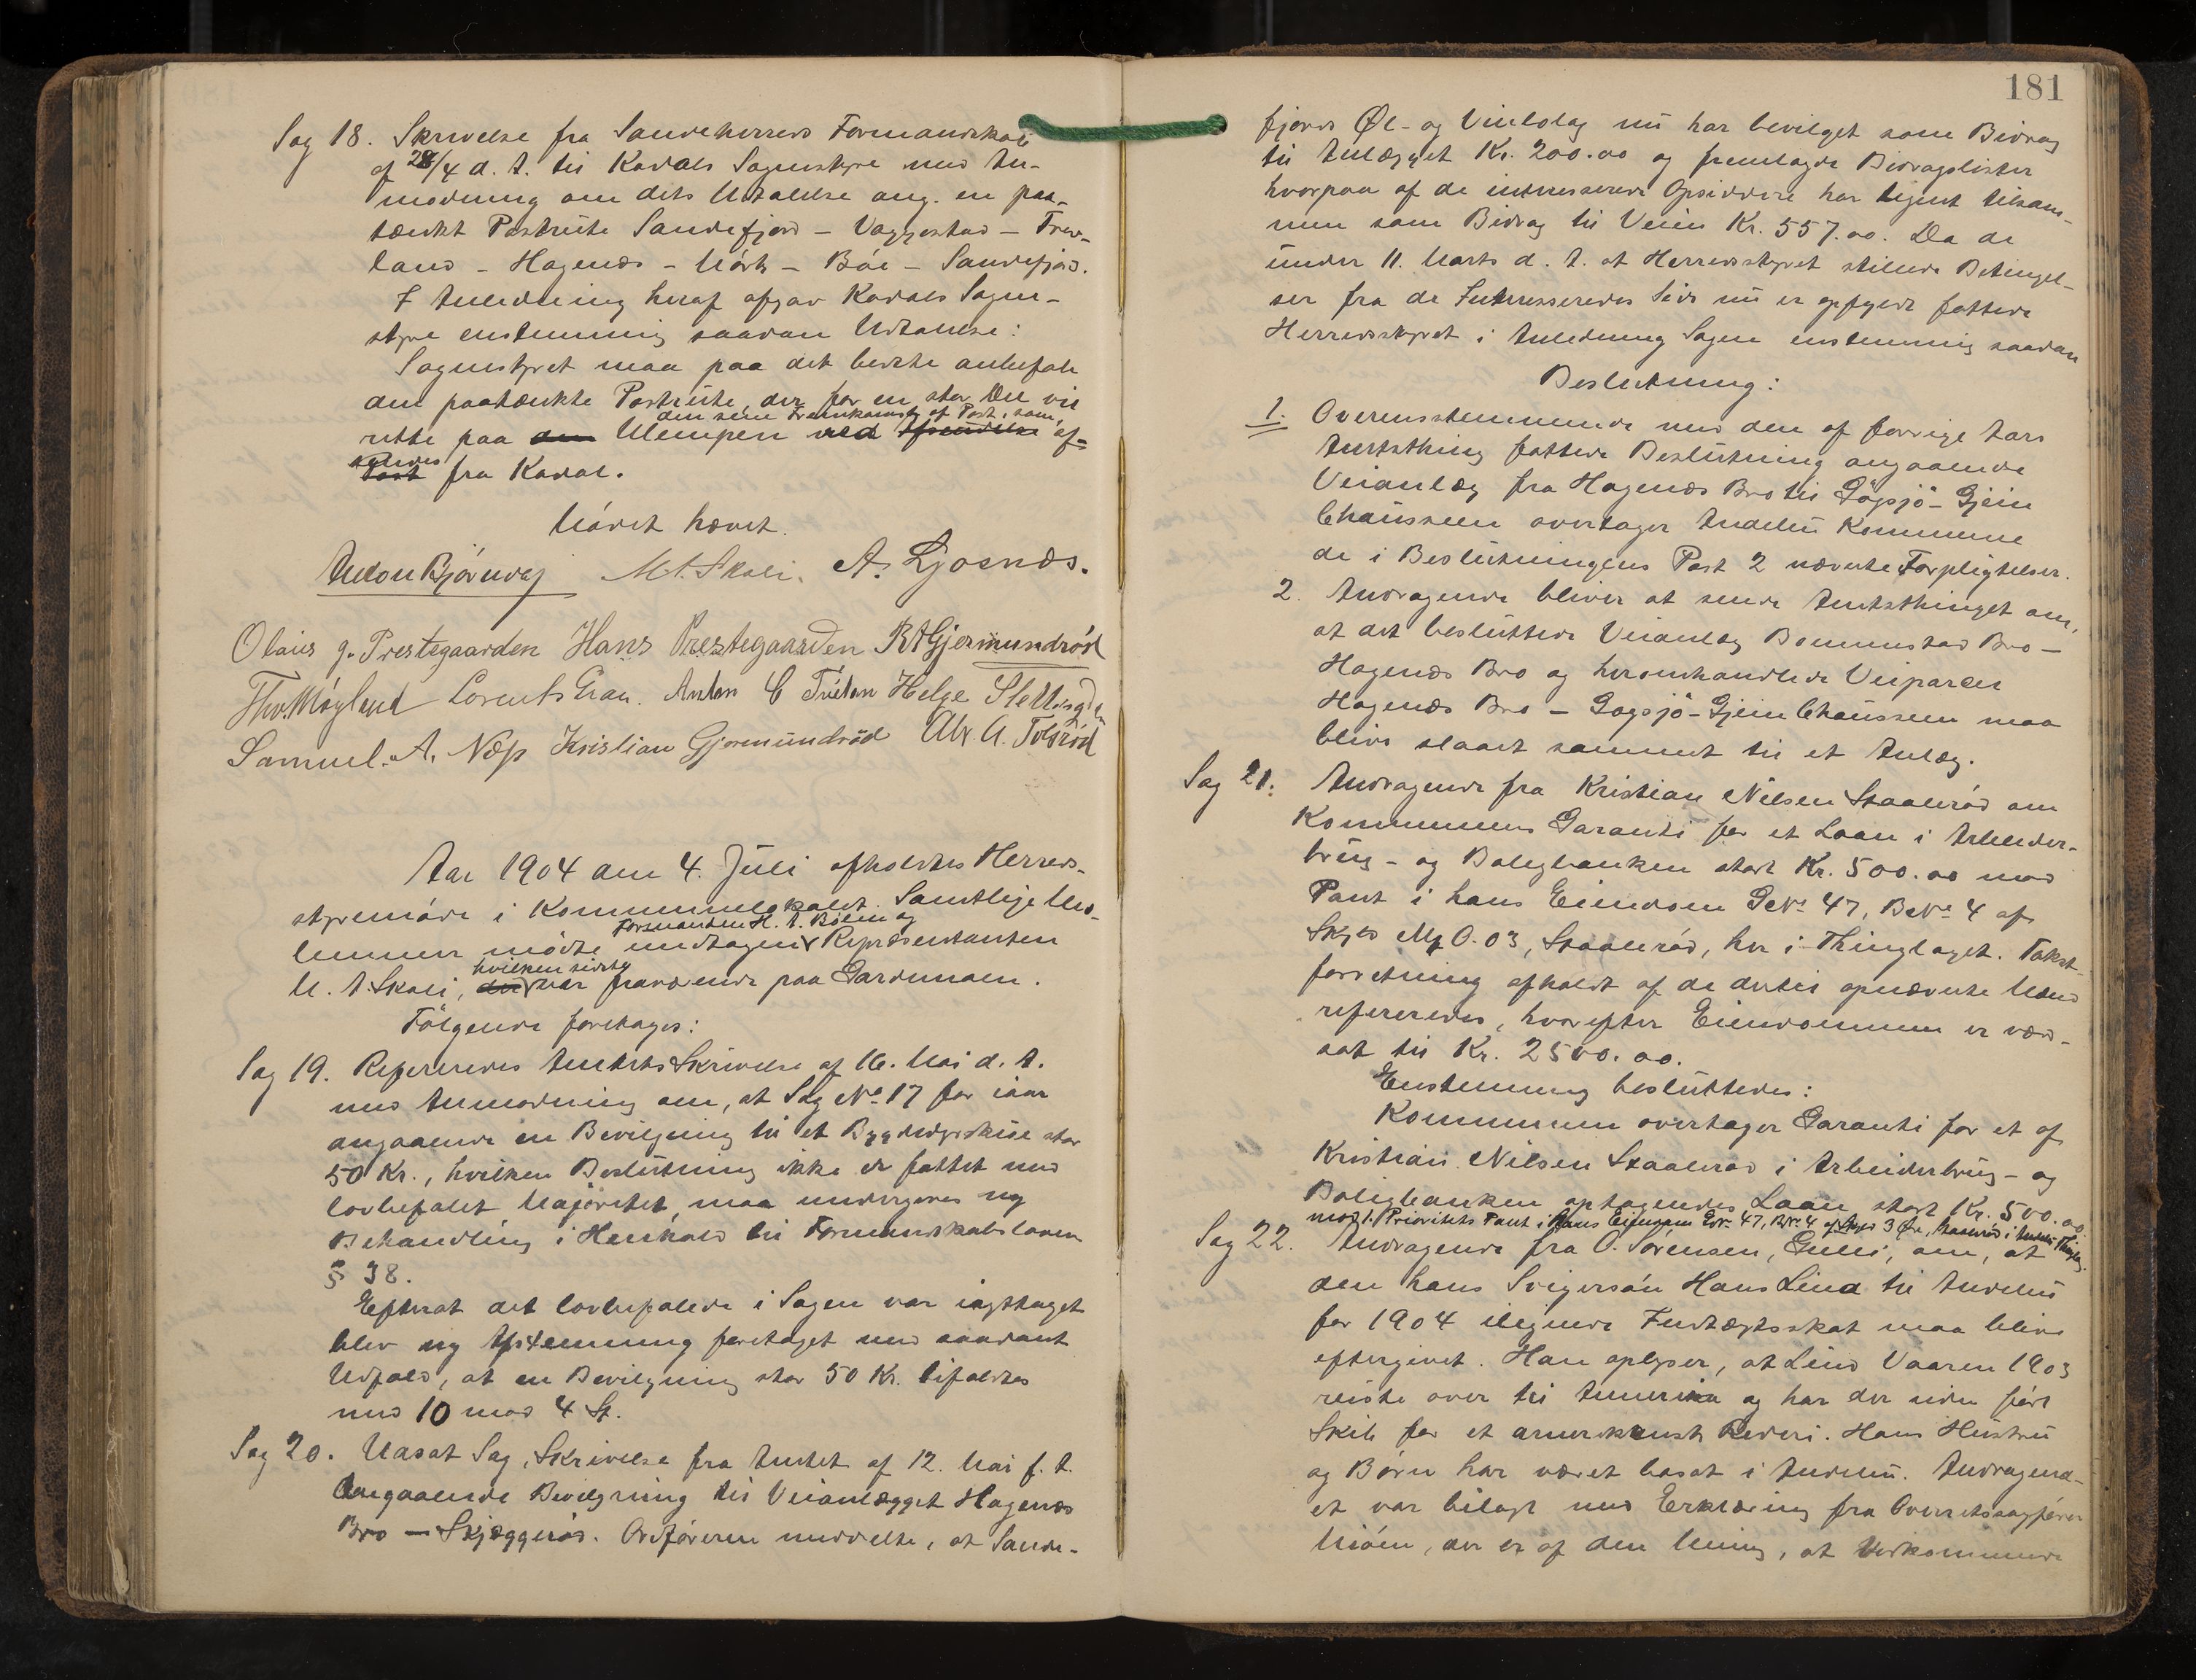 Sag 18. Skrivelse fra Sandeherreds Formandskab
af 28/4 d. A. til Kodals Sognestyre med An-
modning om dets Udtalelse ang. en paa-
tænkt Postrute Sandefjord – Vaggestad – Trev-
land – Hagenæs – Mörk – Böe – Sandefjord.
I Anledning heraf afgav Kodals Sogne-
styre enstemmig saadan Udtalelse:
Sognestyret maa paa det bedste anbefale
den paatænkte Postrute, der for en stor Del vil
den sene Fremkomst af Post, som
rette paa den Ulempen ved Afsendelse af-
sendes
Post fra Kodal.
Mödet hævet.
Anton Bjørndag M. A. Skali. A. Ljosnæs.
Olaus g. Prestegaarden Hans Prestegaarden R A Gjermundröd
Thv. Möyland Lorents Grau. Anton C Trölan Helge Slettingda
Samuel. A. Næss Kristian Gjermundröd Alv. A. Tolsröd
Aar 1904 den 4. Juli afholdtes Herreds-
styremöde i Kommunelokalet. Samtlige Med-
Formanden H. A. Böen og
lemmer mödte undtagen Repræsentanten
hvilken sidste
M. A. Skali, der var fraværende paa Gardemoen.
Fölgende foretages:
Sag 19. Refereredes Amtets Skrivelse af 16. Mai d. A.
med Anmodning om, at Sag No 17 for iaar
angaaende en Bevilgning til et Bygdedyrskue stor
50 Kr., hvilken Beslutning ikke er fattet med
lovbefalet Majoritet, maa undergives ny
Behandling i Henhold til Formandskabsloven
§ 38.
Efterat det lovbefalede i Sagen var iagttaget
blev ny Afstemning foretaget med saadant
Udfald, at en Bevilgning stor 50 Kr. bifaldtes
med 10 mod 4 St.
Sag 20. Udsat Sag, Skrivelse fra Amtet af 12. Mai f. A.
Angaaende Bevilgning til Veianlægget Hagenæs
Bro – Skjæggeröd. Ordföreren meddelte, at Sande-
181
fjords Øl- og Vinbolag nu har bevilget som Bidrag
til Anlægget Kr. 200.00 og fremlagde Bidragslister
hvorpaa af de interesserede Opsiddere har tegnet tilsam-
men som Bidrag til Veien Kr. 557.00. Da de
under 11. Marts d. A. af Herredsstyret stillede Betingel-
ser fra de Interesseredes Side nu er opfyldt fattede
Herredsstyret i Anledning Sagen enstemmig saadan
Beslutning:
1. Overensstemmende med den af forrige Aars
Amtsthing fattede Beslutning angaaende
Veianlæg fra Hagenæs Bro til Gögsjö-Gjein
Chausseen overtager Andebu Kommune
de i Beslutningens Post 2 nævnte Forpligtelser.
2. Andragende bliver at sende Amtsthinget om,
at det besluttede Veianlæg Bommestad Bro –
Hagenæs Bro og heromhandlede Veiparcel
Hagenæs Bro – Gogsjö-Gjein Chausseen maa
blive slaaet sammen til et Anlæg.
Sag 21. Andragende fra Kristian Nilsen Skaaleröd om
Kommunens Garanti for et Laan i Arbeider-
brug- og Boligbanken stort Kr. 500.00 mod
Pant i hans Eiendom G.No 47, B.No 4 af
Skyld Mk 0.03, Skaaleröd, her i Thinglaget. Takst-
forretning afholdt af de dertil opnævnte Mænd
refereredes, hvorefter Eiendommen er værd-
sat til Kr. 2500.00.
Enstemmig besluttedes:
Kommunen overtager Garanti for et af
Kristian Nilsen Skaaleröd i Arbeiderbrug- og
Boligbanken optagendes Laan stort Kr. 500.00
mod 1. Prioritets Pant i hans Eiendom G.No 47, B.No 4 af Skyld 3 Øre, Skaaleröd i Andebu Thinglag.
Sag 22. Andragende fra O. Sörensen, Gulli, om, at
den hans Svigersön Hans Lind til Andebu
for 1904 ilignede Indtægtsskat maa blive
eftergivet. Han oplyser, at Lind Vaaren 1903
reiste over til Amerika og har der siden fört
Skib for et amerikansk Rederi. Hans Hustru
og Börn har været bosat i Andebu. Andragend-
et var bilagt med Erklæring fra Overretssagförer
Miöen, der er af den Mening, at Vedkommende